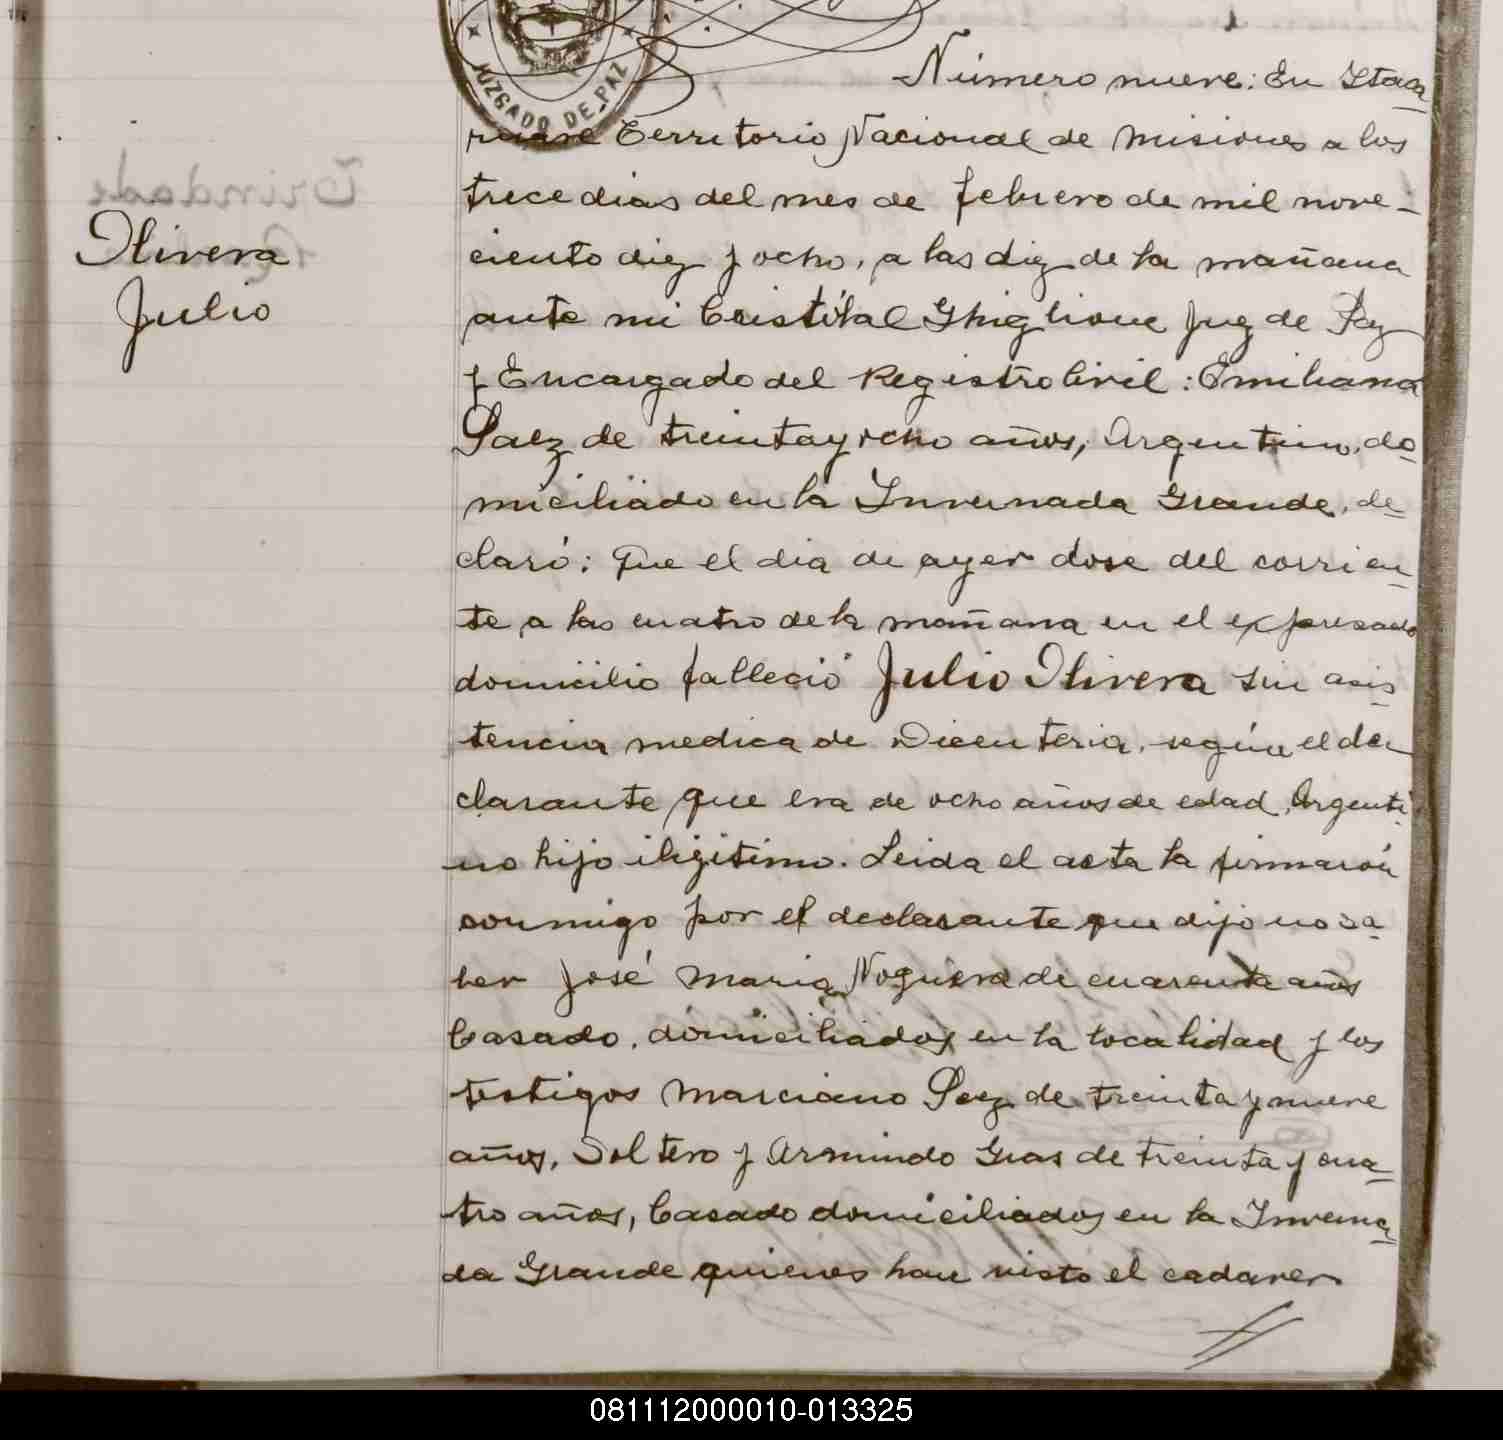 JUZGADO DE PAZ
Número nueve: En Itaca
ruare Territorio Nacional de Misiones a los
trece dias del mes de febrero de mil nove-
Olivera
ciento diez y ocho, a las diez de la mañana
Julio
ante mi Cristóbal Ghiglione Juez de Paz
y Encargado del Registro Civil: Emiliano
Paez de treinta y ocho años, Argentino, do
miciliado en la Invernada Grande, de
claró: Que el dia de ayer dose del corrien
te a las cuatro de la mañana en el expresado
domicilio falleció Julio Olivera sin asis
tencia medica de Dicenteria, según el de
clarante que era de ocho años de edad, Argenti
no hijo iligitimo. Leida el acta la firmarón
conmigo por el declarante que dijo no sa
ber José Maria Noguera de cuarenta años
Casado, domiciliados en la localidad y los
testigos Marciano Paez de treinta y nueve
años, Soltero y Armindo Gras de treinta y cua
tro años, Casado domiciliados en la Inverna
da Grande quienes han visto el cadaver
081112000010-013325